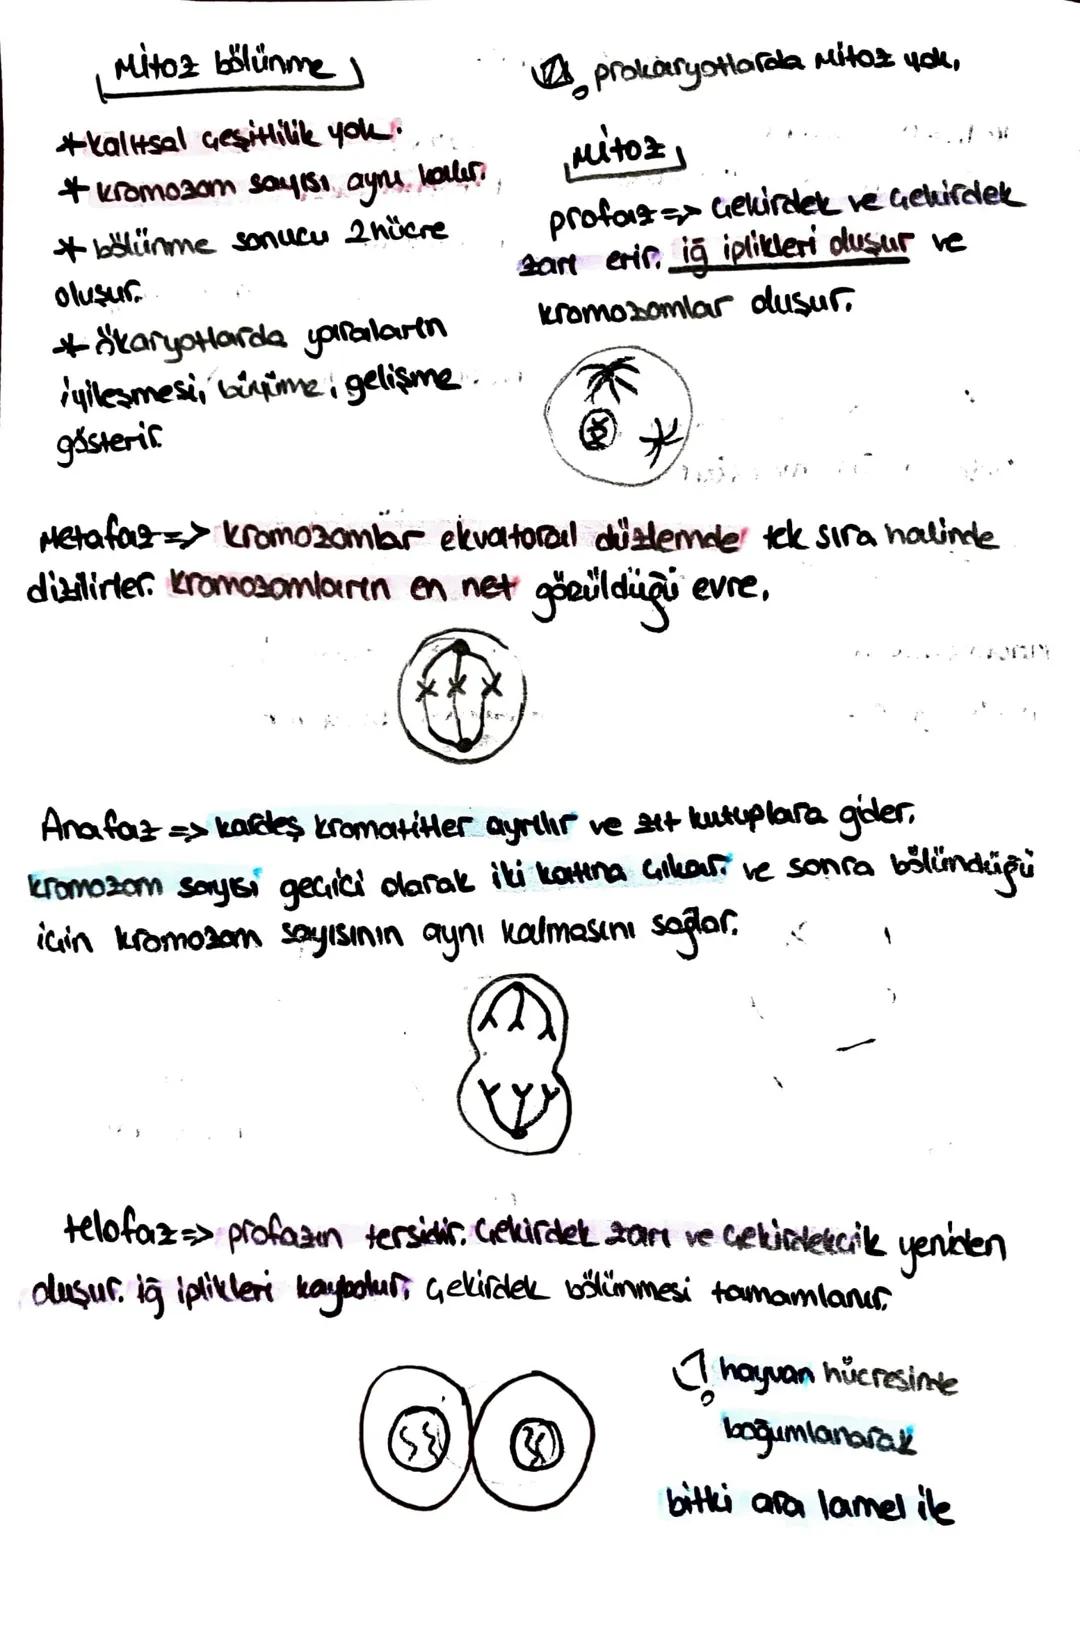 Mitoz bölünme
* kalıtsal çeşitlilik yok.
* kromozom sayısı aynı kalır.
* bölünme sonucu 2 hücre
oluşur.
* ökaryotlarda yaraların
iyileşmesi, büyüme, gelişme
gösterir.
prokaryotlarda Mitoz yok,
Mitoz
profaz => Çekirdek ve Çekirdek
zarı erir. iğ iplikleri oluşur ve
kromozomlar oluşur.
Metafaz => kromozomlar ekvatoral düzlemde tek sıra halinde
dizilirler. kromozomların en net görüldüğü evre.
Anafaz => kardeş kromatitler ayrılır ve zıt kutuplara gider.
kromozom sayısı geçici olarak iki katına çıkar. ve sonra bölündüğü
için kromozom sayısının aynı kalmasını sağlar.
telofaz => profazın tersidir. Çekirdek zarı ve Çekirdekcik yeniden
oluşur. iğ iplikleri kaybolur. Çekirdek bölünmesi tamamlanır.
! hayvan hücresinde
boğumlanarak
bitki ara lamel ile